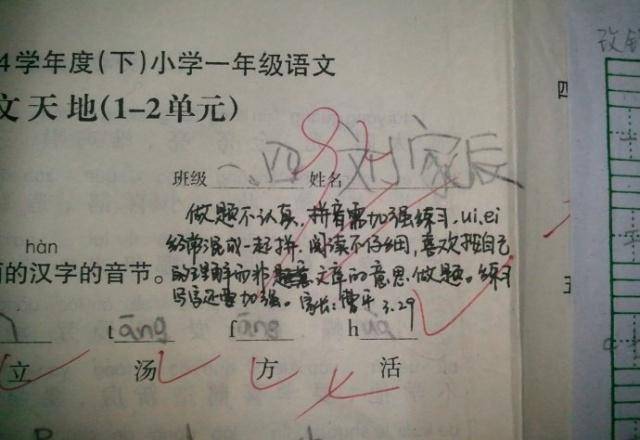 4学年度(下)小学一年级语文
文天地(1-2单元)
班级 一.四 姓名 刘家辰
做题不认真，拼音需加强练习，ui.ei
经常混成一起拼，阅读不仔细，喜欢按自己
的理解而非题意文章的意思做题。练习
写字还要加强。家长：曹平 3.29
hàn
的汉字的音节。
tāng fāng huó
立 汤 方 活
四
五